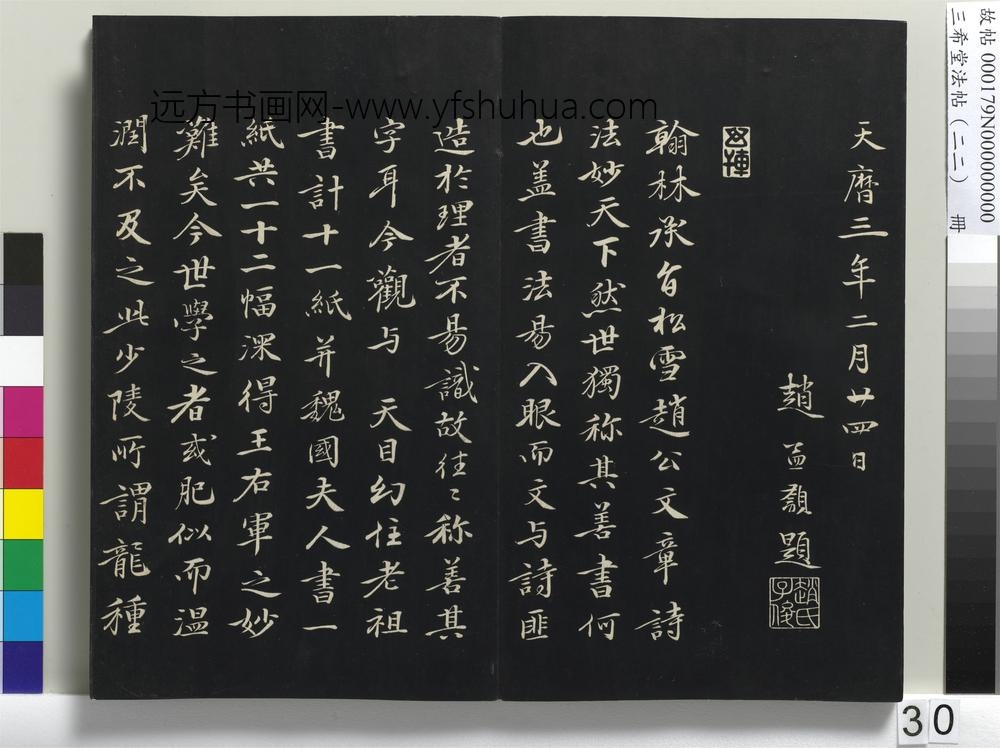 天曆三年二月廿四日
趙孟頫題
趙氏子俊
翰林承旨松雪趙公文章詩
法妙天下然世獨称其善書何
也盖書法易入眼而文与詩匪
造於理者不易識故往〻称善其
字耳今觀与 天目幻住老祖
書計十一紙并魏國夫人書一
紙共一十二幅深得王右軍之妙
難矣今世學之者或肥似而温
潤不及之此少陵所謂龍種
远方书画网-www.yfshuhua.com
故帖 000179N000000000
三希堂法帖(二二) 冊
30